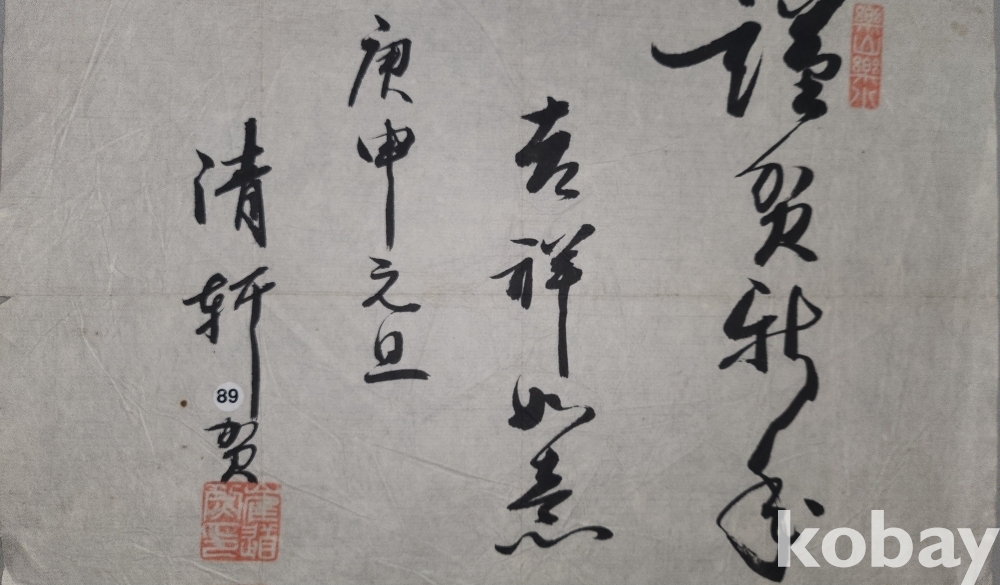 樂山樂水
謹賀新年
吉祥如意
庚申元旦
清軒賀
89
kobay